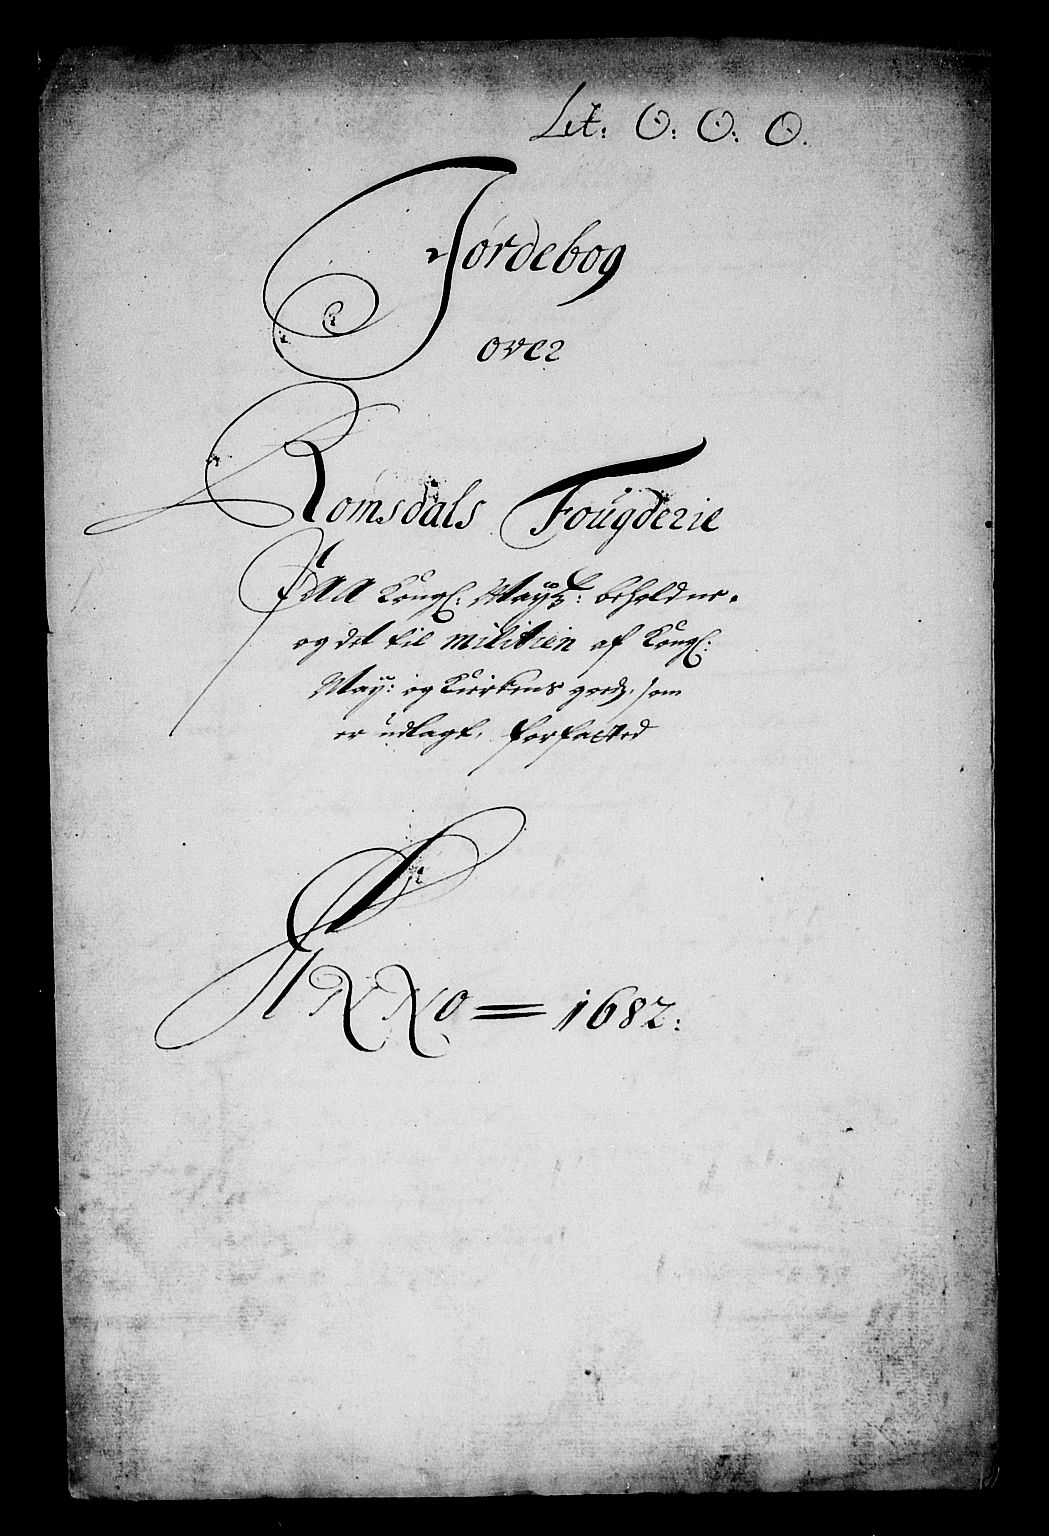 Lit: O: O: O.
Jordebog
over
Romsdals Fougderie
Paa Kongl: Maytz: beholdne.
og det til militien af Kongl:
May: og Kirkens godz, som
er udlagt, forfatted
ANNO = 1682: